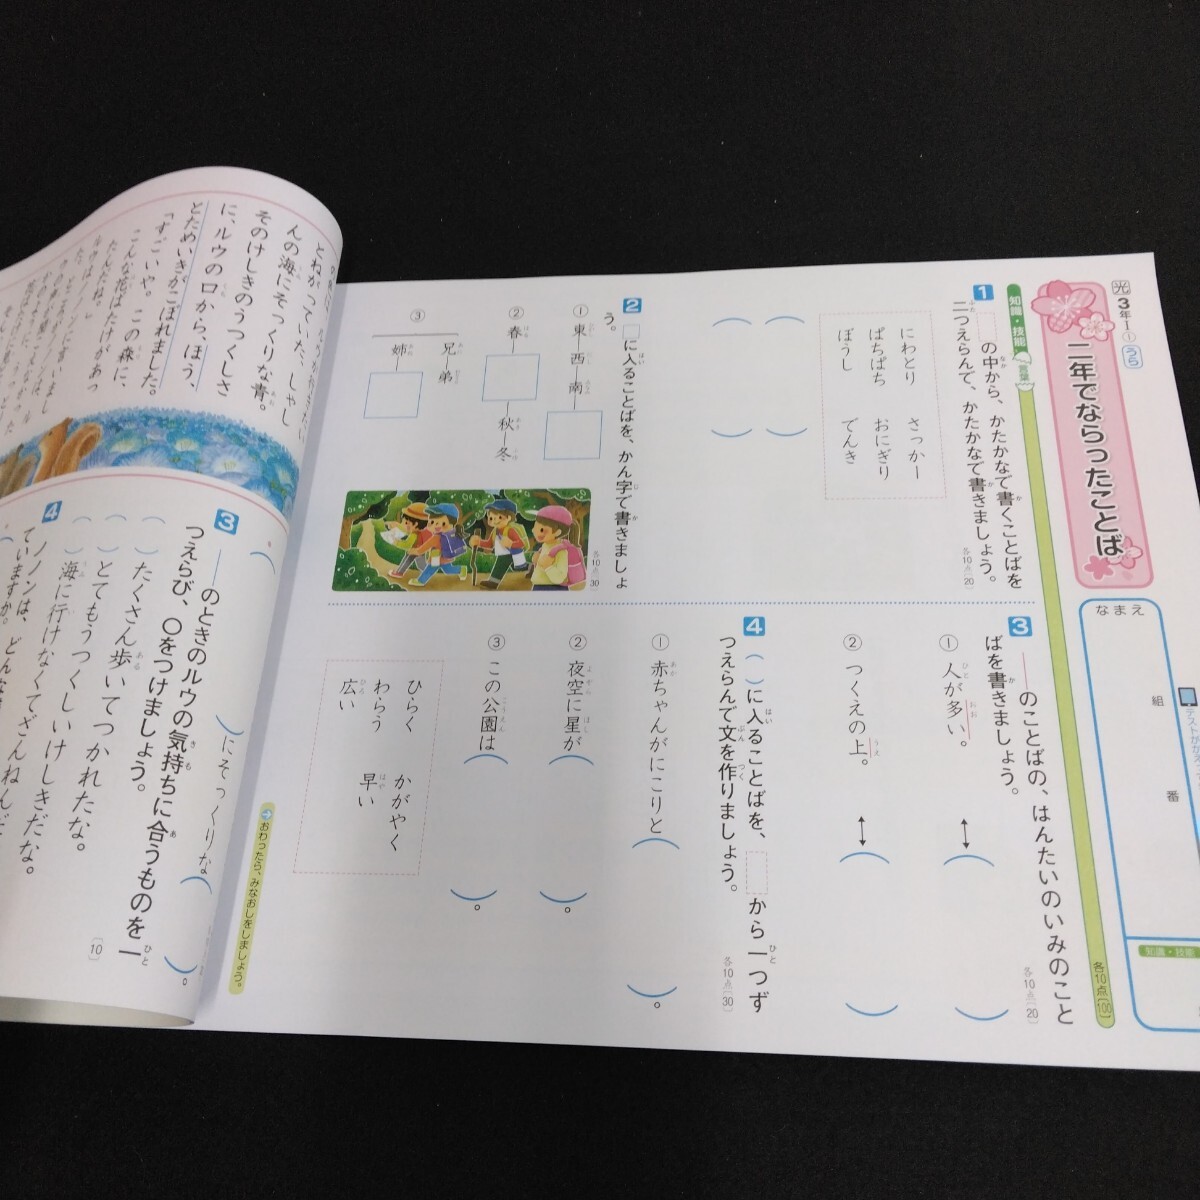 光
3年Ⅰ-①
うら
二年でならったことば
なまえ
組
番
知識・技能
知識・技能
言葉
各10点〔100〕
1 の中から、かたかなで書くことばを
二つえらんで、かたかなで書きましょう。
各10点〔20〕
にわとり さっかー
ぱちぱち おにぎり
ぼうし でんき
( )
( )
2 □に入ることばを、かん字で書きましょ
う。
各10点〔30〕
① 東—西—南—□
② 春—□—秋—冬
③ 兄—弟
姉—□
3 ——のことばの、はんたいのいみのこと
ばを書きましょう。
各10点〔20〕
① 人が多い。 ↔ ( )
② つくえの上。 ↔ ( )
4 ( )に入ることばを、 から一つず
つえらんで文を作りましょう。
各10点〔30〕
① 赤ちゃんがにこりと( )。
② 夜空に星が( )。
③ この公園は( )。
ひらく かがやく
わらう 早い
広い
おわったら、みなおしをしましょう。
とねがっていた、しゃし
んの海にそっくりな青。
そのけしきのうつくしさ
に、ルウの口から、ほう、
とためいきがこぼれました。
「すごいや。この森に、
こんな花ばたけがあっ
たんだね。」
( )にそっくりな( )。
3 ——のときのルウの気持ちに合うものを一
つえらび、○をつけましょう。
〔10〕
( )たくさん歩いてつかれたな。
( )とてもうつくしいけしきだな。
( )海に行けなくてざんねんだ
4 ノノンは、どんな
ていますか。